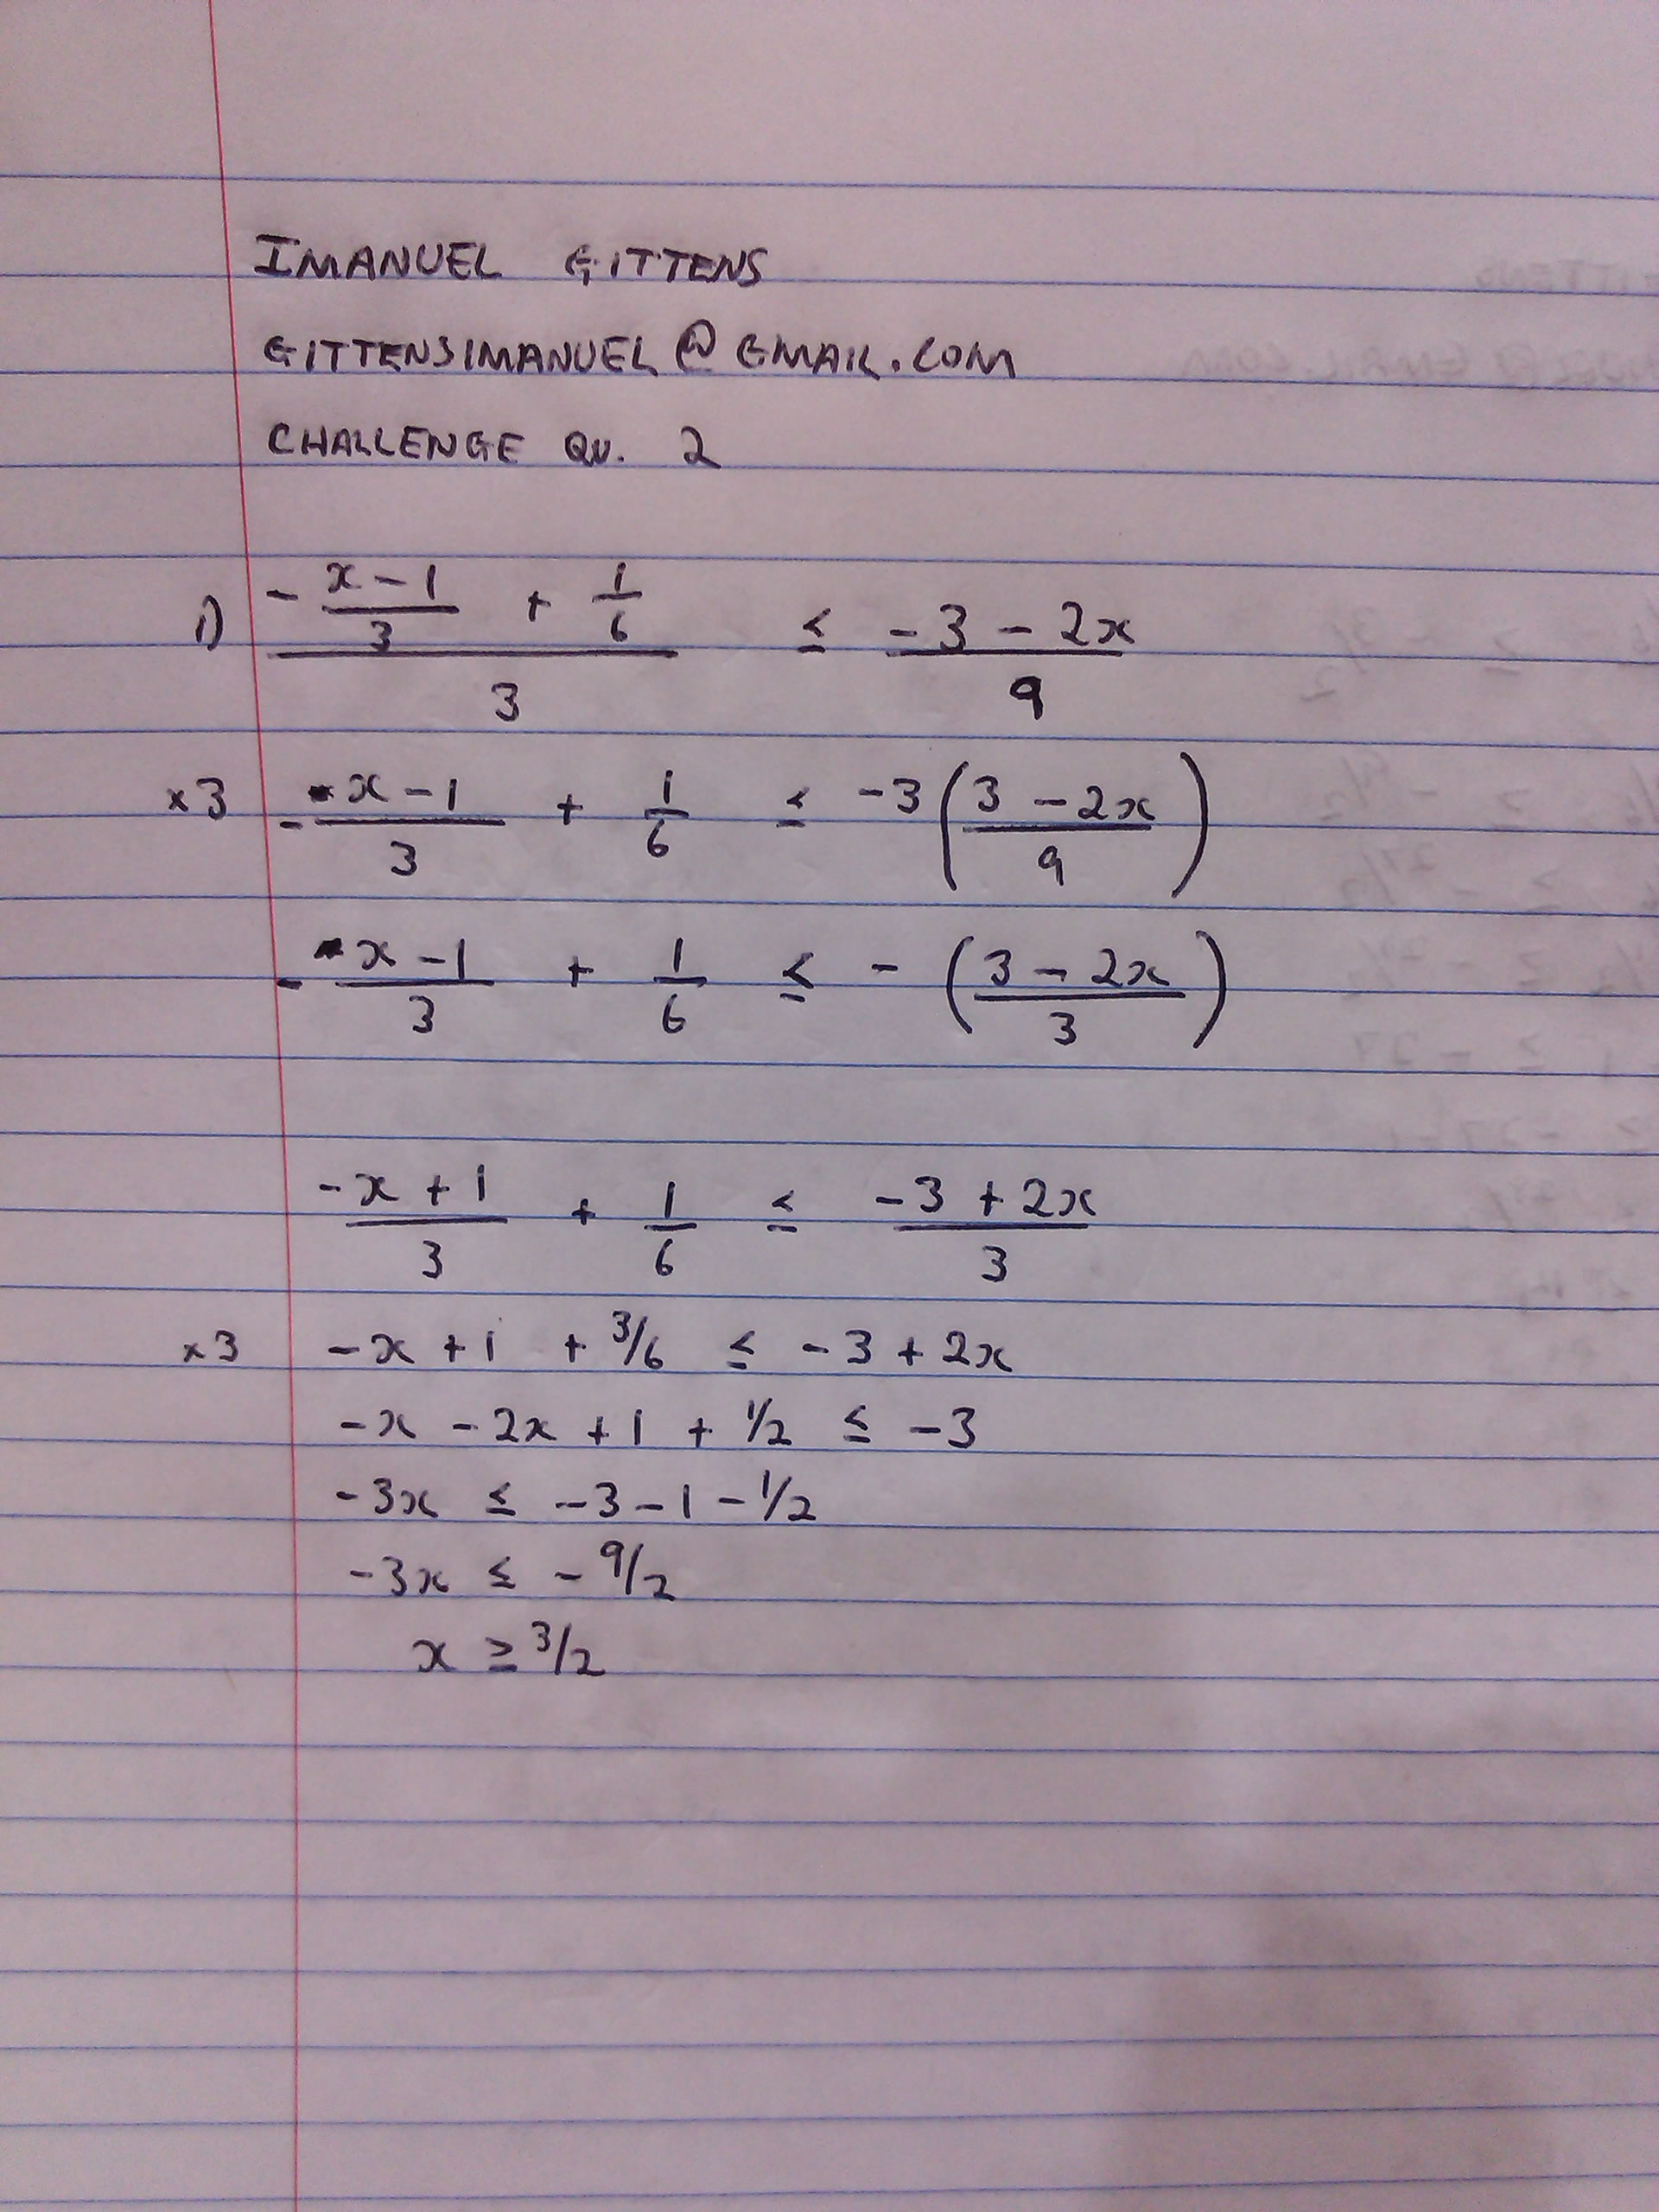 IMANUEL GITTENS
GITTENSIMANUEL@GMAIL.COM
CHALLENGE QU. 2
1) (- (x - 1)/3 + 1/6)/3 ≤ - (3 - 2x)/9
×3 - (x - 1)/3 + 1/6 ≤ -3((3 - 2x)/9)
- (x - 1)/3 + 1/6 ≤ - ((3 - 2x)/3)
(-x + 1)/3 + 1/6 ≤ (-3 + 2x)/3
×3 -x + 1 + 3/6 ≤ -3 + 2x
-x - 2x + 1 + 1/2 ≤ -3
-3x ≤ -3 - 1 - 1/2
-3x ≤ - 9/2
x ≥ 3/2